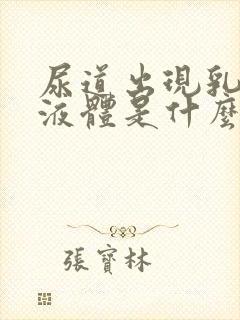 尿道出現乳
液體是什麼
張寶林